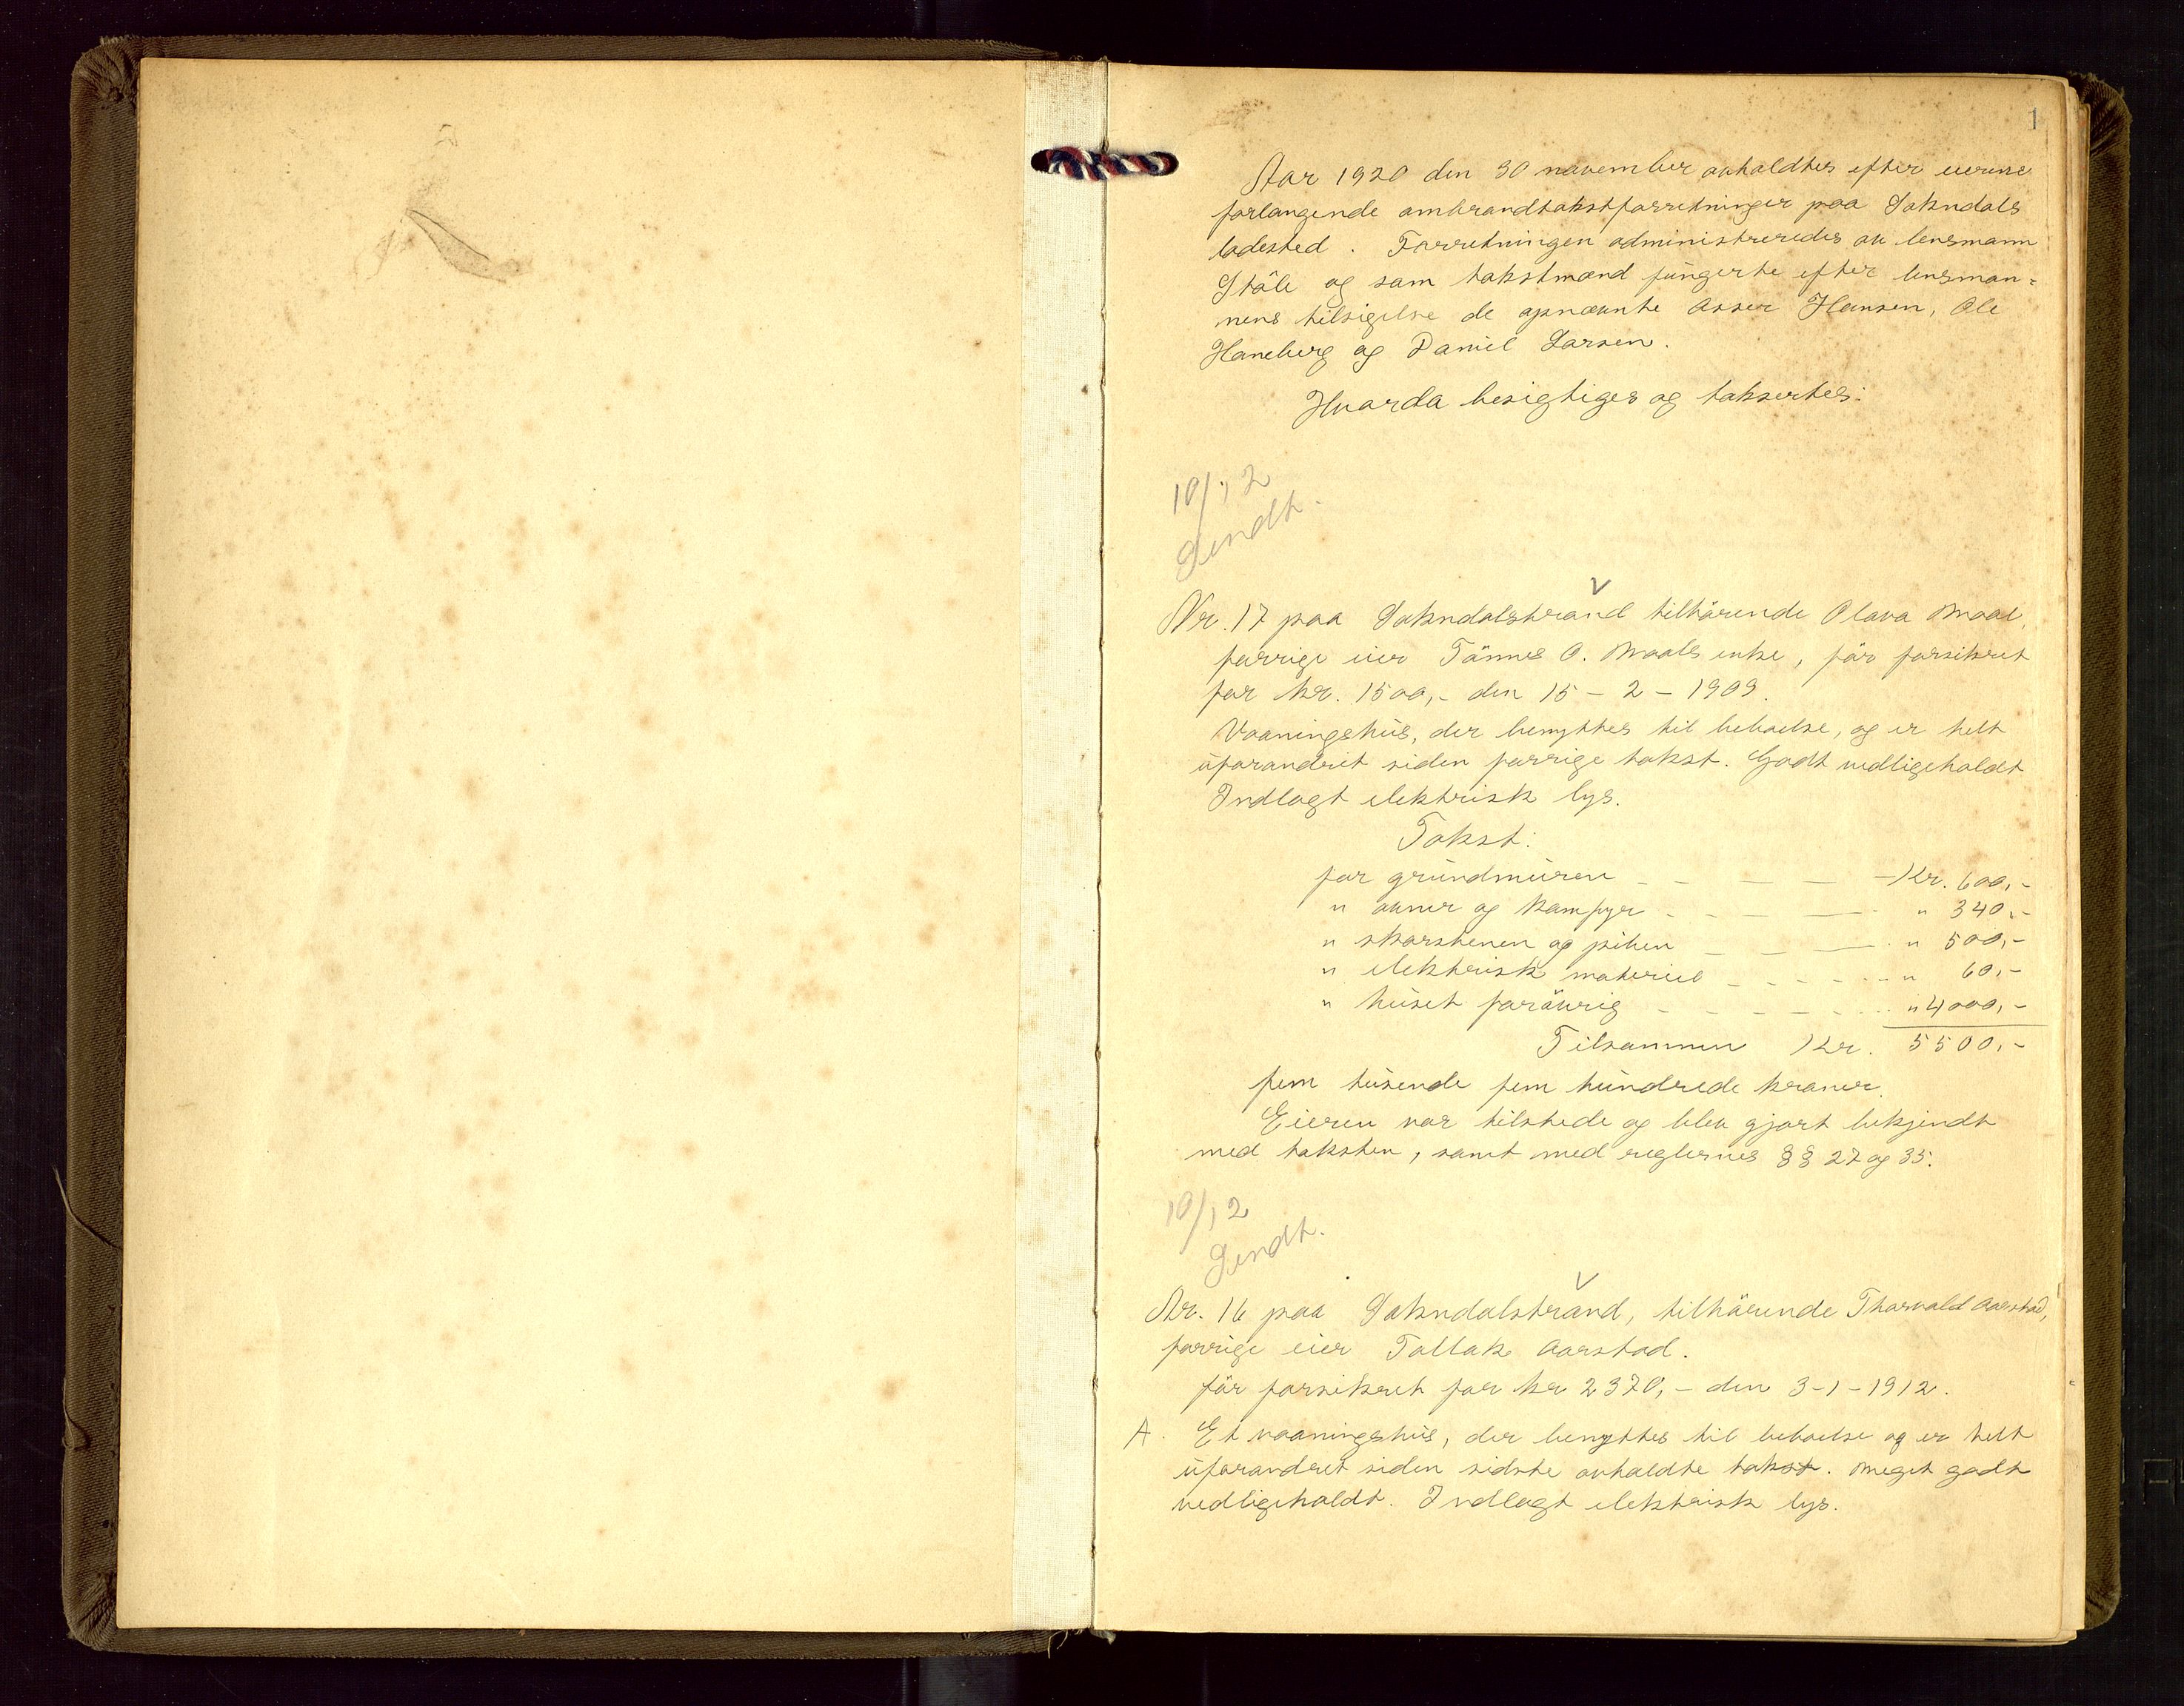 1
Aar 1920 den 30 november avholdtes efter eierne
forlangende ombrandtakstforretninger paa Sokndals
ladested. Forretningen administreredes av lensmann
Ståle og som takstmænd fungerte efter lensman=
nens tilsigelse de opnævnte Asser Hansen, Ole
Haneberg og Daniel Larsen.
Hvorda besigtiges og taksertes:
10/12
Sendt.
Nr. 17 paa Sokndalstrand tilhörende Olava Moal,
forrige eier Tönnes O. Moals enke, för forsikret
for kr. 1500,- den 15-2-1909.
Vaaningshus, der benyttes til beboelse, og er helt
uforandret siden forrige takst. Godt vedligeholdt
Indlagt elektrisk lys.
Takst:
for grundmuren - - - - - Kr. 600,-
" ovner og komfyr - - - - - " 340,-
" skorstenen og piben - - - - " 500,-
" elektrisk materiel - - - - - " 60,-
" huset foröverig - - - - - " 4000,-
Tilsammen Kr. 5500,-
fem tusende fem hundrede kroner.
Eieren var tilstede og blev gjort bekjendt
med taksten, samt med reglernes §§ 27 og 35.
10/12
Sendt.
Nr. 16 paa Sokndalstrand, tilhörende Thorvald Aarstad,
forrige eier Tollak Aarstad.
för forsikret for kr 2370,- den 3-1-1912.
A. Et vaaningshus, der benyttes til beboelse og er helt
uforandret siden sidste avholdte takst. Meget godt
vedligeholdt. Indlagt elektrisk lys.